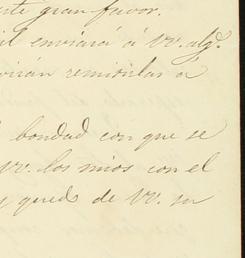 este gran favor.
enviará á VV. alg.
remitirlas á
bondad con que se
VV. los mios con el
y quedo de VV. su